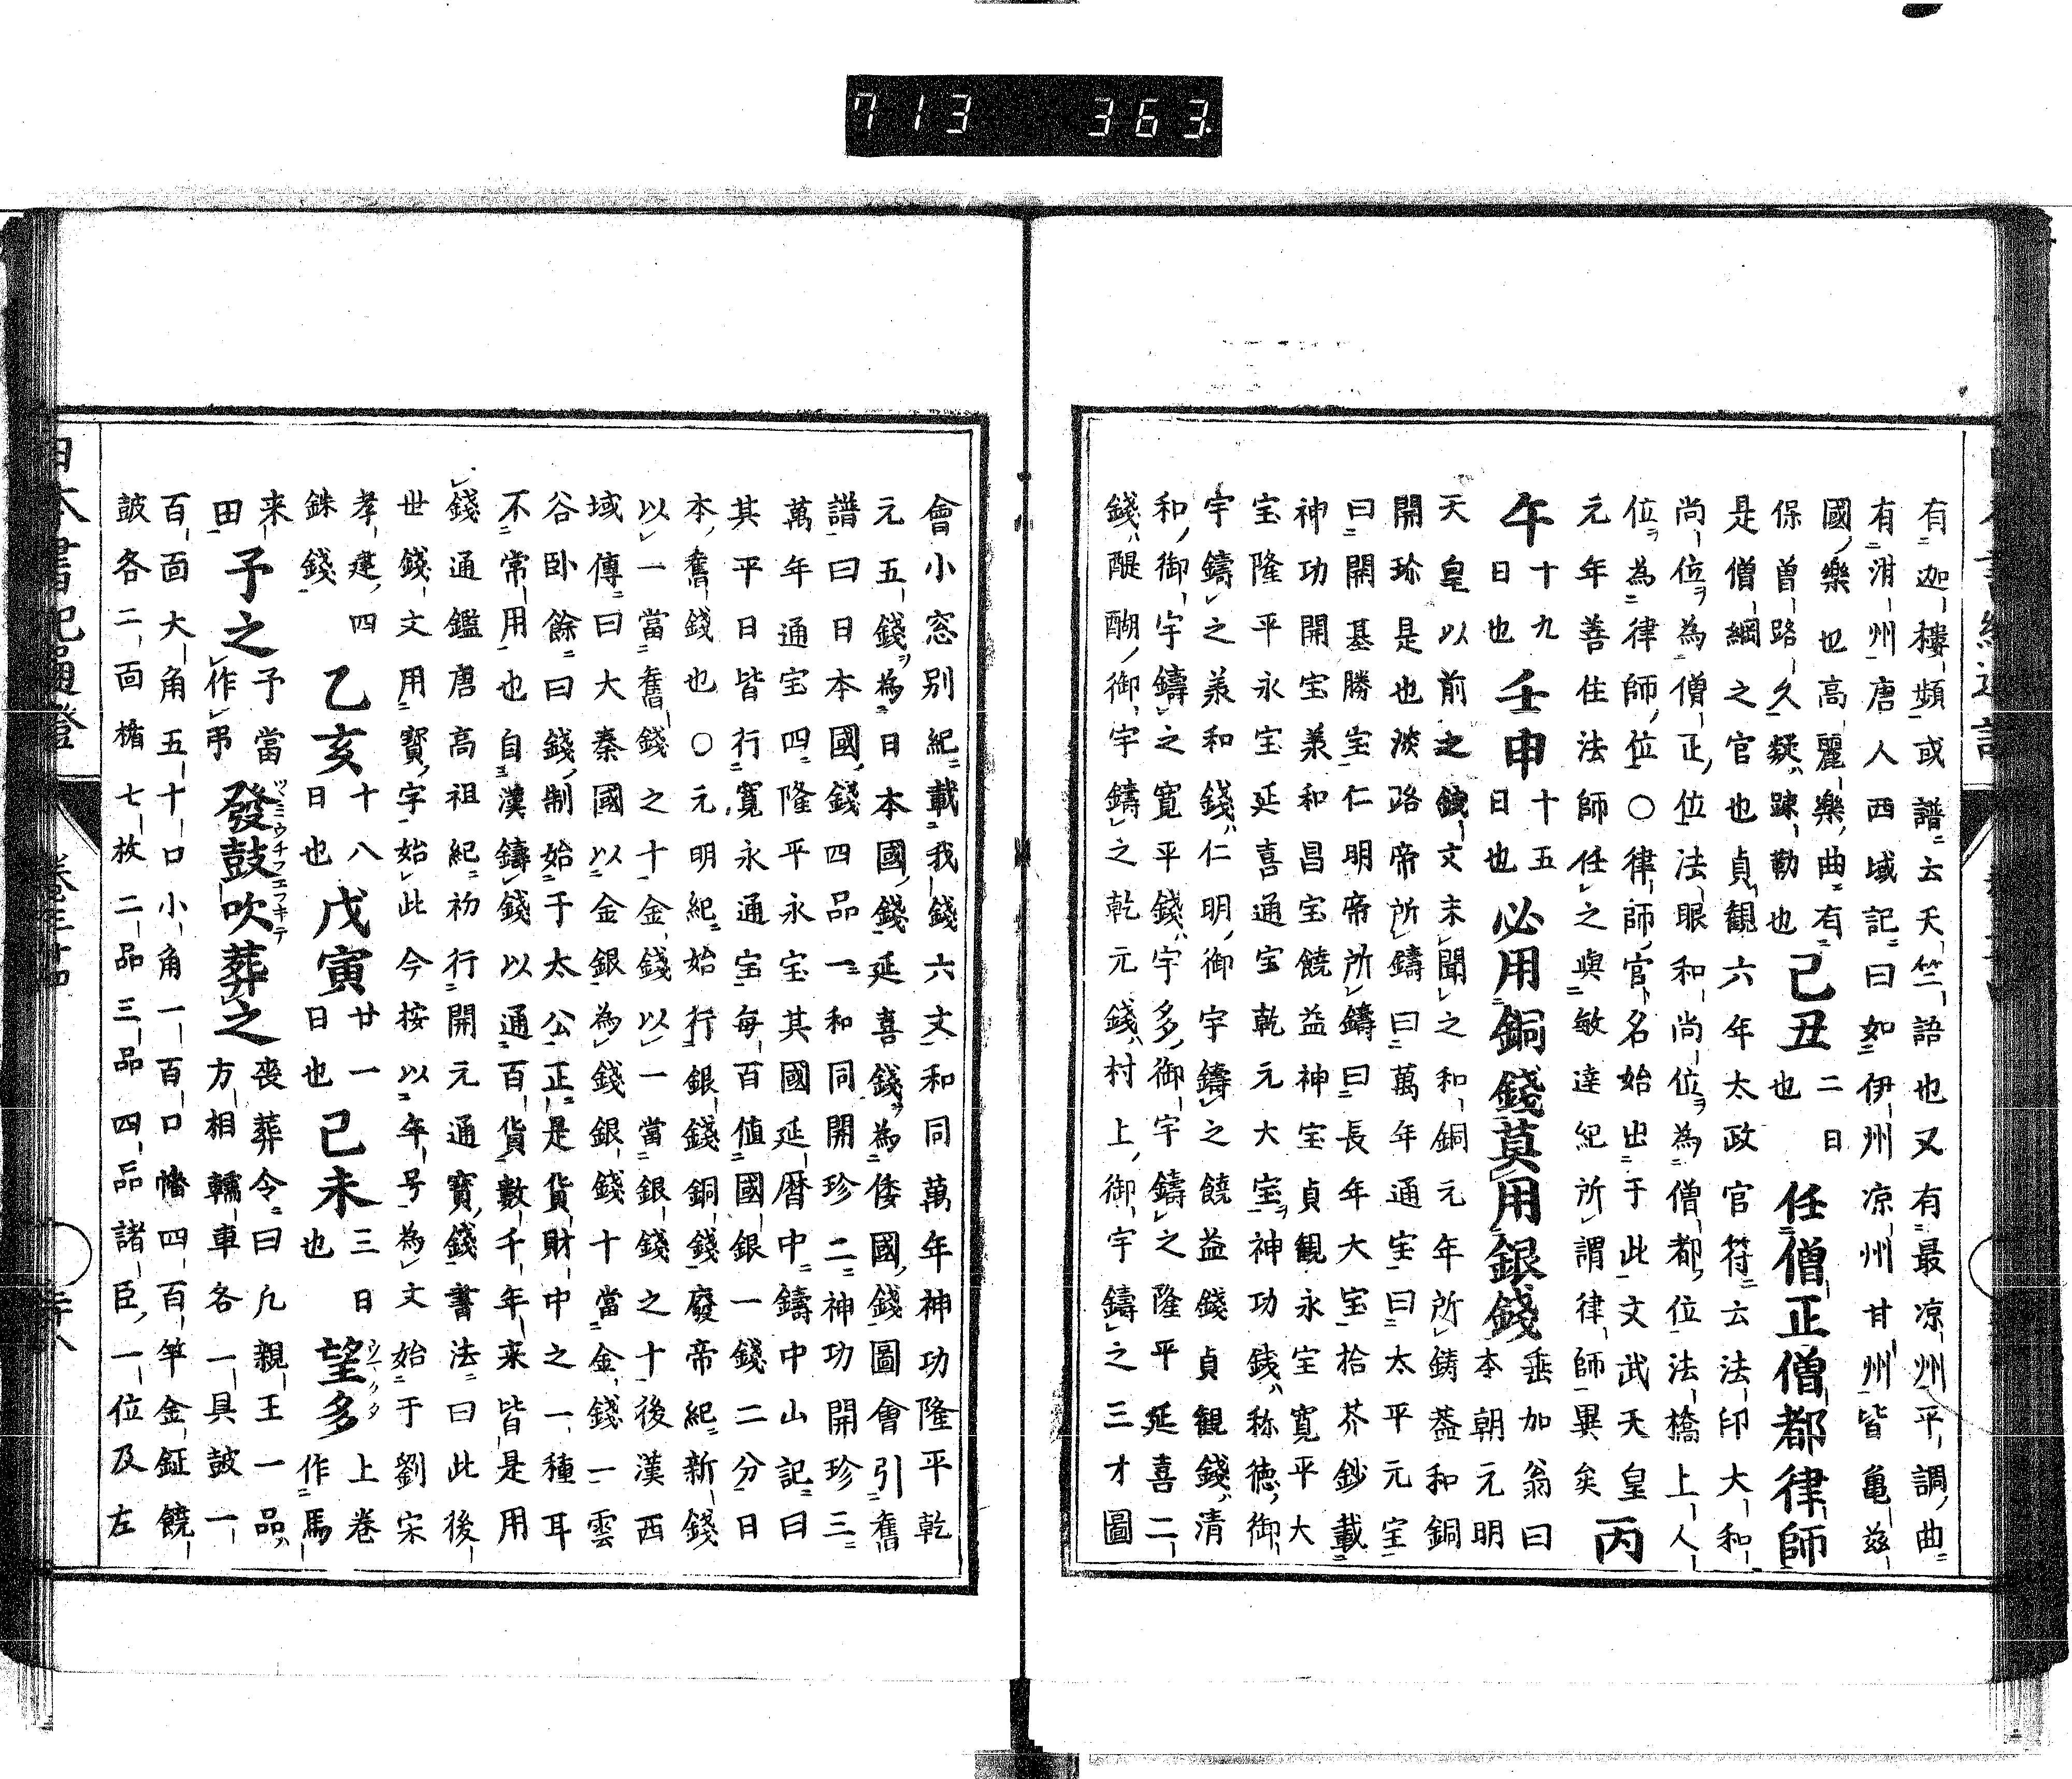 713 363
有迦樓頻或譜云天竺語也又有最凉州平調曲
有泔州唐人西域記曰如伊州凉州甘州皆亀茲
國樂也高麗樂曲有
保曽路久疑踈勒也 己丑 二日也 任僧正僧都律師
是僧綱之官也貞観六年太政官符云法印大和
尚位為僧正位法眼和尚位為僧都位法橋上人
位為律師位○律師官名始出于此文武天皇
元年善住法師任之與敏達紀所謂律師異矣 丙
午 十九日也 壬申 十五日也 必用銅錢莫用銀錢 垂加翁曰本朝元明
天皇以前之錢文末聞之和銅元年所鋳蓋和銅
開珎是也淡路帝所鑄曰萬年通宝曰太平元宝
曰開基勝宝仁明帝所鑄曰長年大宝拾芥鈔載
神功開宝羕和昌宝饒益神宝貞観永宝寛平大
宝隆平永宝延喜通宝乾元大宝神功錢称徳御
宇鑄之羕和錢仁明御宇鑄之饒益錢貞観錢清
和御宇鑄之寛平錢宇多御宇鑄之隆平延喜二
錢醍醐御宇鑄之乾元錢村上御宇鑄之三才圖
會小窓別紀載我錢六文和同萬年神功隆平乾
元五錢為日本國錢延喜錢為倭國錢圖會引舊
譜曰日本國錢四品一和同開珍二神功開珍三
萬年通宝四隆平永宝其國延暦中鑄中山記曰
其平日皆行寛永通宝毎百値國銀一錢二分日
本舊錢也○元明紀始行銀錢銅錢廢帝紀新錢
以一當舊錢之十金錢以一當銀錢之十後漢西
域傳曰大秦國以金銀為錢銀錢十當金錢一雲
谷卧餘曰錢制始于太公正是貨財中之一種耳
不常用也自漢鑄錢以通百貨數千年来皆是用
錢通鑑唐高祖紀初行開元通寳錢書法曰此後
世錢文用寳字始此今按以年号為文始于劉宋
孝建四銖錢 乙亥 十八日也 戊寅 廿一日也 己未 三日也 望多 上巻作馬
来田 予之 予當作弔 發鼓吹葬之 喪葬令曰凡親王一品方相轜車各一具鼓一
百面大角五十口小角一百口幡四百竿金鉦饒
鼓各二面楯七枚二品三品四品諸臣一位及左
ツヽミウチフエフキテ
日本書紀通證